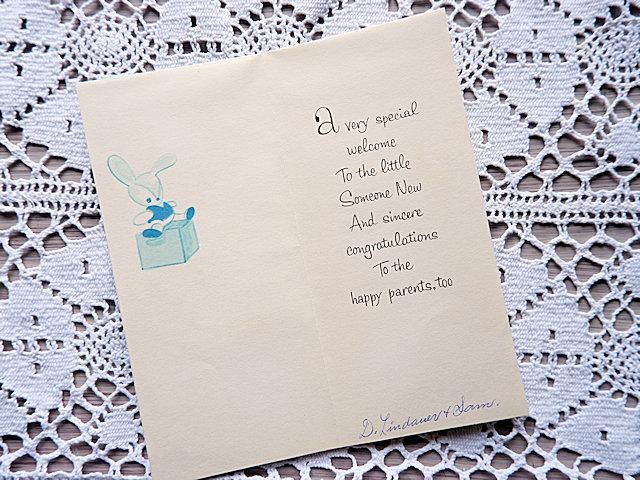 a very special
welcome
To the little
Someone New
And sincere
congratulations
To the
happy parents, too
D. Lindauer & Sam.